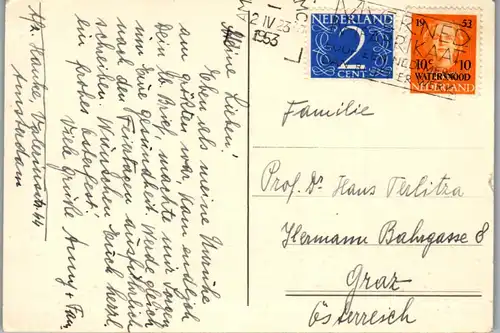 Meine Lieben!
Eben als meine Unruhe
am größten war, kam endlich
Dein lb. Brief, machte mir Sorge
um Eure Gesundheit. Werde gleich
nach den Feiertagen ausführlich
schreiben. Wünschen Euch herzl.
ein frohes Osterfest!
Viele Grüße Anny + Fam.
Amsterdam
2 IV 53
1953
NEDERLAND
2
CENT
19 53
10 c +10
WATERSNOOD
NEDERLAND
Familie
Prof. Dr Hans Terlitza
Hermann Bahrgasse 8
Graz
Österreich